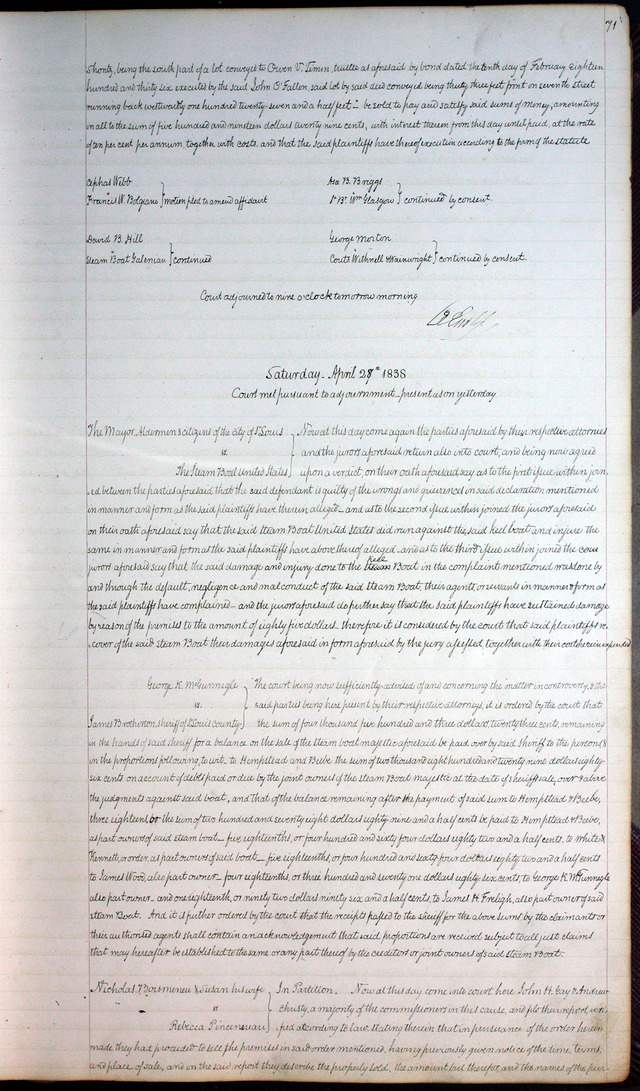 71
Shontz, being the south part of a lot conveyed to Owen V. Timon, trustee as aforesaid by bond dated the tenth day of February eighteen
hundred and thirty six executed by the said John O'Fallon, said lot by said deed conveyed being thirty three feet front on seventh street
running back westwardly one hundred twenty-seven and a half feet – be sold to pay and satisfy said sums of money, amounting
in all to the sum of five hundred and nineteen dollars twenty nine cents, with interest thereon from this day until paid, at the rate
of ten per cent per annum, together with costs. and that the said plaintiffs have thereof execution according to the form of the statute
Cephas Webb
Francis W. } motion filed to amend affidavit
Asa B. Briggs
St. Bt. Wm Glasgow } continued by consent.
David B. Hill
Steam Boat Galenian } continued
George Morton
Couts Withnell & Wainwright } continued by consent.
Court adjourned to nine o'clock tomorrow morning
Saturday – April 28th 1838
Court met pursuant to adjournment – present as on yesterday
The Mayor, Aldermen & citizens of the city of St Louis } Now at this day comes again the parties aforesaid by their respective attornies
vs. and the jurors aforesaid return also into court, and being now agreed
The Steam Boat United States upon a verdict, on their oath aforesaid say as to the first issue within join
-ed between the parties aforesaid that the said defendant is guilty of the wrongs and grievances in said declaration mentioned
in manner and form as the said plaintiffs have therein alleged – and as to the second issue within joined the jurors aforesaid
on their oath aforesaid say that the said Steam Boat United States did run against the said keel boat and injure the
same in manner and form as the said plaintiffs have above thereof alleged – and as to the third issue within joined the
jurors aforesaid say that the said damage and injury done to the Steam Keele Boat in the complaint mentioned was done by
and through the default, negligence and mal conduct of the said Steam Boat, their agents, or servants in manner & form as
the said plaintiffs have complained – and the jurors aforesaid do further say that the said plaintiffs have sustained damage
by reason of the premises to the amount of eighty five dollars – therefore it is considered by the court that said plaintiffs re
-cover of the said Steam Boat their damages aforesaid in form aforesaid by the jury assessed, together with their costs herein expended
George K. McGunnegle } The court being now sufficiently advised of and concerning the matter in controversy, & the
vs. said parties being here present by their respective attornies, it is ordered by the court that
James Brotherton, sheriff of St Louis county the sum of four thousand five hundred and three dollars, twenty three cents, remaining
in the hands of said sheriff for a balance on the sale of the steam boat majestic aforesaid be paid over by said Sheriff to the persons &
in the proportions following, to wit. to Hempstead and Beebe the sum of two thousand eight hundred and twenty nine dollars eighty-
six cents on account of debts paid or due by the joint owners of the Steam Boat Majestic at the date of sheriff's sale, over & above
the judgments against said boat, and that of the balance remaining after the payment of said sum to Hempstead & Beebe,
three eighteenths or the sum of two hundred and seventy eight dollars eighty-nine and a half cents be paid to Hempstead & Beebe,
as part owners of said steam boat – five eighteenths, or four hundred and sixty four dollars eighty two and a half cents. to White &
Kennett, or order, as part owners of said boat – five eighteenths, or four hundred and sixty four dollars eighty two and a half cents
to James Wood, also part owner – four eighteenths, or three hundred and seventy one dollars eighty six cents, to George K. McGunnegle
also part owner – and one eighteenth, or ninety two dollars ninety six and a half cents, to James H. Freligh, also part owner of said
steam Boat. And it is further ordered by the court that the receipts passed to the Sheriff for the above sums by the claimants or
their authorised agents shall contain an acknowledgement that said proportions are received subject to all just claims
that may hereafter be established to the same or any part thereof by the creditors or joint owners of said Steam Boat.
Nicholas Boismenu & Susan his wife } In Partition. Now at this day come into court here John H. Gay & Andrew
vs. Christy, a majority of the commissioners in this cause, and file their report, veri
Rebecca -fied according to law stating therein that in pursuance of the order herein
made they had proceeded to sell the premises in said order mentioned, having previously given notice of the time, terms,
and place of sale, and in the said report they describe the property sold, the amount bid therefor, and the names of the pur